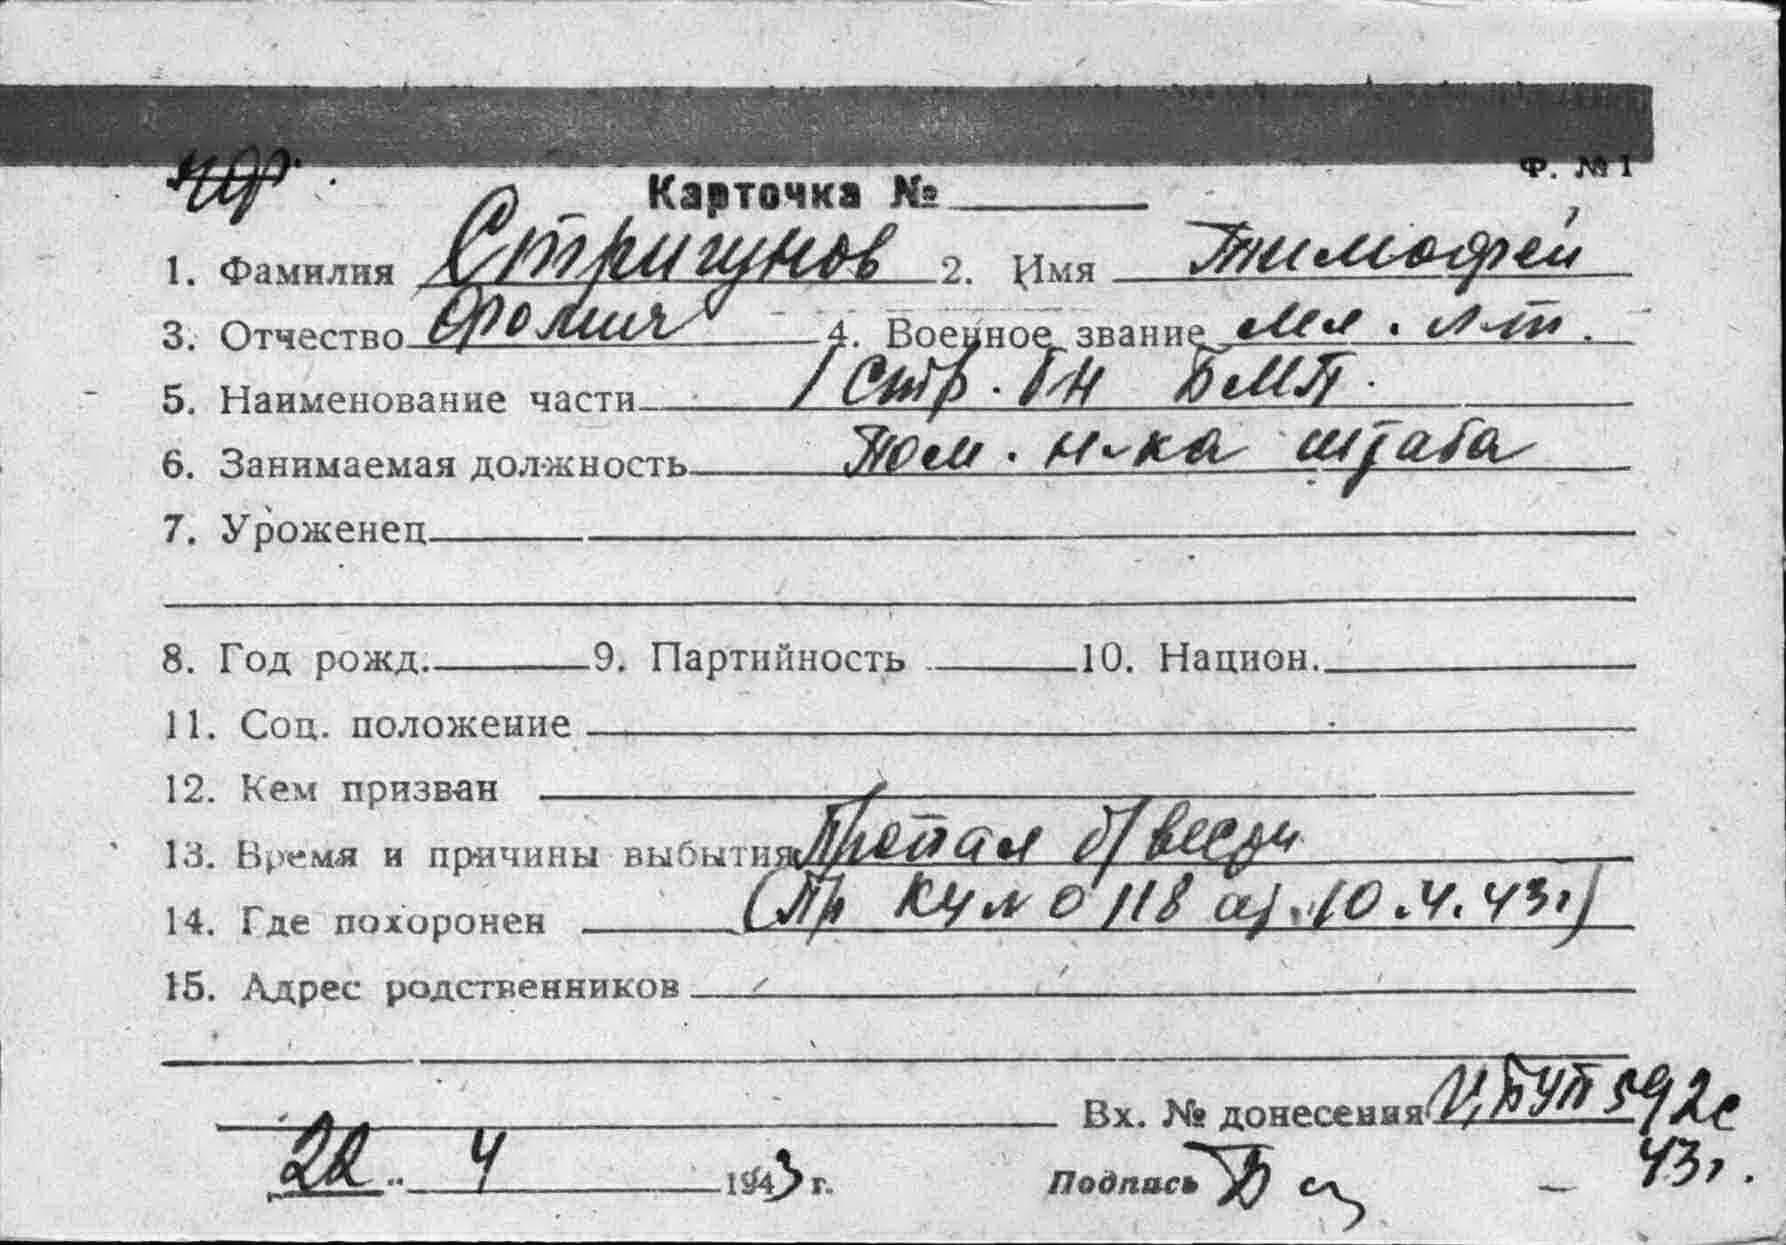 Ф. № 1
Карточка №
1. Фамилия Стригунов 2. Имя Тимофей
3. Отчество Фролич 4. Военное звание мл. л-т.
5. Наименование части 1 стр. б-н БМП.
6. Занимаемая должность Пом. н-ка штаба
7. Уроженец
8. Год рожд. 9. Партийность 10. Национ.
11. Соц. положение
12. Кем призван
13. Время и причины выбытия Пропал б/вести
14. Где похоронен (Пр 118 от 10.4.43г)
15. Адрес родственников
Вх. № донесения 592с
43г.
22 4 1943 г. Подпись